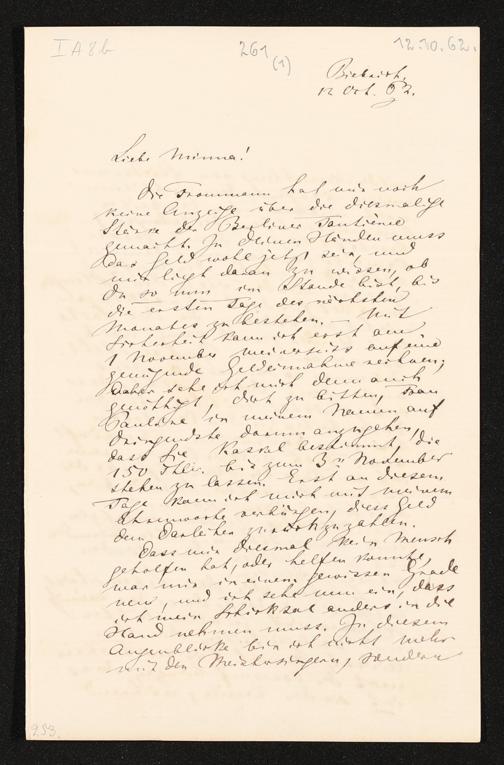 I A 8 b
261
(1)
12.10.62.
Biebrich.
12 Oct. 62.
Liebe Minna!
Die Frommann hat mir noch
keine Anzeige über die diesmalige
Stärke der Berliner Tantième
gemacht. In deinen Händen muss
das Geld wohl jetzt sein, und
mir liegt daran zu wissen, ob
Du so nun im Stande bist, bis
die ersten Tage des nächsten
Monates zu bestehen. — Mit
Sicherheit kann ich erst am
1 November meinerseits auf eine
genügende Geldeinnahme rechnen;
daher sehe ich mich denn auch
genöthigt, dich zu bitten, Frau
Pauline in meinem Namen auf
Dringendste darum anzugehen,
dass sie Kaskel bestimmt, die
150 Thlr. bis zum 3 November
stehen zu lassen. Erst an diesem
Tage kann ich mich mit meinem
Ehrenworte verbürgen, diess Geld
dem Darleiher zurückzuzahlen.
Dass mir diesmal kein Mensch
geholfen hat, oder helfen konnte,
war mir in einem gewissen Grade
neu, und ich sehe nun ein, dass
ich mein Schicksal anders in die
Hand nehmen muss. In diesem
Augenblicke bin ich nicht mehr
mit den Meistersingern, sondern
953.